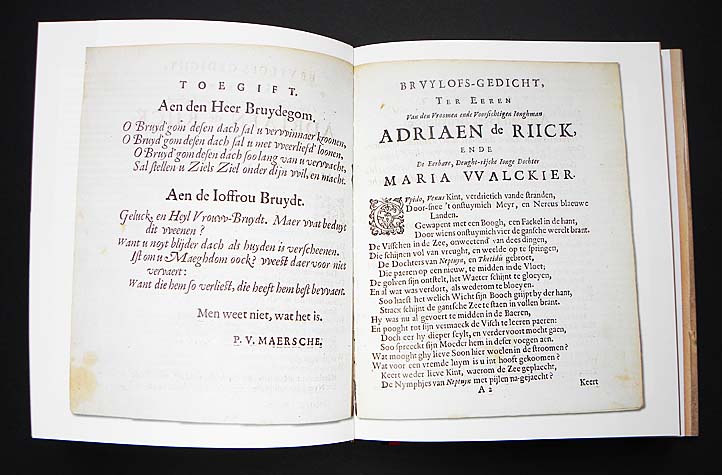 TOEGIFT.
Aen den Heer Bruydegom.
O Bruyd'gom desen dach sal u vervvinnaer kroonen,
O Bruyd'gom desen dach sal u met vveerliefd' loonen.
O Bruyd'gom desen dach soo lang van u vervvacht,
Sal stellen u Ziels Ziel onder dijn vvil, en macht.
Aen de Ioffrou Bruydt.
Geluck, en Heyl Vrouvv-Bruydt. Maer vvat beduyt
dit vveenen?
Want u noyt blijder dach als huyden is verscheenen.
Ist om u Maeghdom oock? vveest daer voor niet
vervaert:
Want die hem so verliest, die heeft hem best bevvaert.
Men weet niet, wat het is.
P. V. MAERSCHE.
BRVYLOFS-GEDICHT,
TER EEREN
Van den Vroomen ende Voorsichtigen Jonghman
ADRIAEN de RIICK,
ENDE
De Eerbare, Deught-rijcke Ionge Dochter
MARIA VVALCKIER.
CVpido, Venus Kint, verdrietich vande stranden,
Door-snee 't onstuymich Meyr, en Nereus blaeuwe
Landen.
Gewapent met een Boogh, een Fackel in de hant,
Door wiens onstuymich vier de gansche werelt brant.
De Visschen in de Zee, onweetend' van dees dingen,
Die schijnen vol van vreught, en weelde op te springen,
De Dochters van Neptuyn, en Thetidis gebroet,
Die paeren op een nieuw, te midden in de Vloet;
De golven sijn ontstelt, het Waeter schijnt te gloeyen,
En al wat was verdort, als wederom te bloeyen.
Soo haest het welich Wicht sijn Boogh grijpt by der hant,
Stracx schijnt de gantsche Zee te staen in vollen brant.
Hy was nu al gevoert te midden in de Baeren,
En pooght tot sijn vermaeck de Visch te leeren paeren:
Doch eer hy dieper seylt, en verder voort mocht gaen,
Soo spreeckt sijn Moeder hem in deser voegen aen.
Wat mooght ghy lieve Soon hier woelen in de stroomen?
Wat voor een vremde luym is u int hooft gekoomen?
Keert weder lieve Kint, waerom de Zee geplaecht,
De Nymphjes van Neptuyn met pijlen na-gejaecht?
A 2 Keert